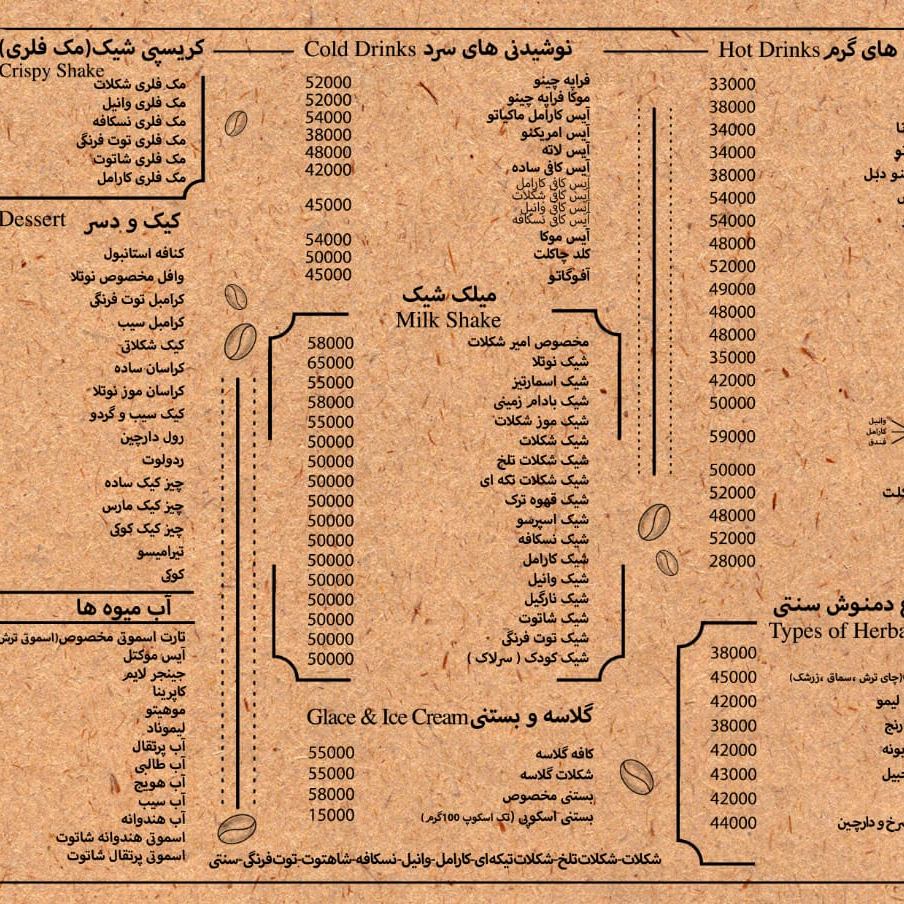 های گرم Hot Drinks
33000
38000
34000
34000
38000 نو دبل
54000
54000
48000
52000
49000
48000
48000
35000
42000
50000
وانیل
کارامل
فندق
59000
50000
52000
48000
52000
28000
دمنوش سنتی
Types of Herba
38000
45000 (چای ترش ،سماق ،زرشک)
42000 لیمو
38000
42000
43000
42000
44000 رخ و دارچین
نوشیدنی های سرد Cold Drinks
فراپه چینو 52000
موکا فراپه چینو 52000
آیس کارامل ماکیاتو 54000
آیس امریکنو 38000
آیس لاته 48000
آیس کافی ساده 42000
آیس کافی کارامل
آیس کافی شکلات
آیس کافی وانیل
آیس کافی نسکافه
45000
آیس موکا 54000
کلد چاکلت 50000
آفوگاتو 45000
میلک شیک
Milk Shake
مخصوص امیر شکلات 58000
شیک نوتلا 65000
شیک اسمارتیز 55000
شیک بادام زمینی 58000
شیک موز شکلات 55000
شیک شکلات 50000
شیک شکلات تلخ 50000
شیک شکلات تکه ای 50000
شیک قهوه ترک 50000
شیک اسپرسو 50000
شیک نسکافه 50000
شیک کارامل 50000
شیک وانیل 50000
شیک نارگیل 50000
شیک شاتوت 50000
شیک توت فرنگی 50000
شیک کودک ( سرلاک ) 50000
گلاسه و بستنی Glace & Ice Cream
کافه گلاسه 55000
شکلات گلاسه 55000
بستنی مخصوص 58000
بستنی اسکوپی (تک اسکوپ 100گرم) 15000
شکلات-شکلات‌تلخ-شکلات‌تیکه‌ای-کارامل-وانیل-نسکافه-شاهتوت-توت‌فرنگی-سنتی
کریسپی شیک(مک فلری)
Crispy Shake
مک فلری شکلات
مک فلری وانیل
مک فلری نسکافه
مک فلری توت فرنگی
مک فلری شاتوت
مک فلری کارامل
کیک و دسر Dessert
کنافه استانبول
وافل مخصوص نوتلا
کرامبل توت فرنگی
کرامبل سیب
کیک شکلاتی
کراسان ساده
کراسان موز نوتلا
کیک سیب و گردو
رول دارچین
ردولوت
چیز کیک ساده
چیز کیک مارس
چیز کیک کوکی
تیرامیسو
کوکی
آب میوه ها
تارت اسموتی مخصوص(اسموتی ترش
آیس موکتل
جینجر لایم
کاپرینا
موهیتو
لیموناد
آب پرتقال
آب طالبی
آب هویج
آب سیب
آب هندوانه
اسموتی هندوانه شاتوت
اسموتی پرتقال شاتوت